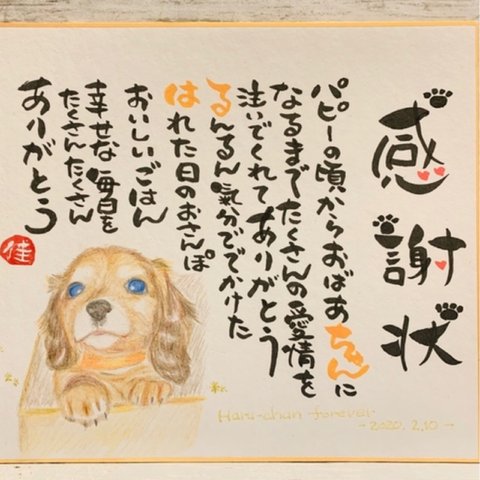 感謝状
パピーの頃からおばあちゃんに
なるまでたくさんの愛情を
注いでくれてありがとう
るんるん気分ででかけた
はれた日のおさんぽ
おいしいごはん
幸せな毎日を
たくさんたくさん
ありがとう
佳
Haru-chan forever
-2020.2.10-